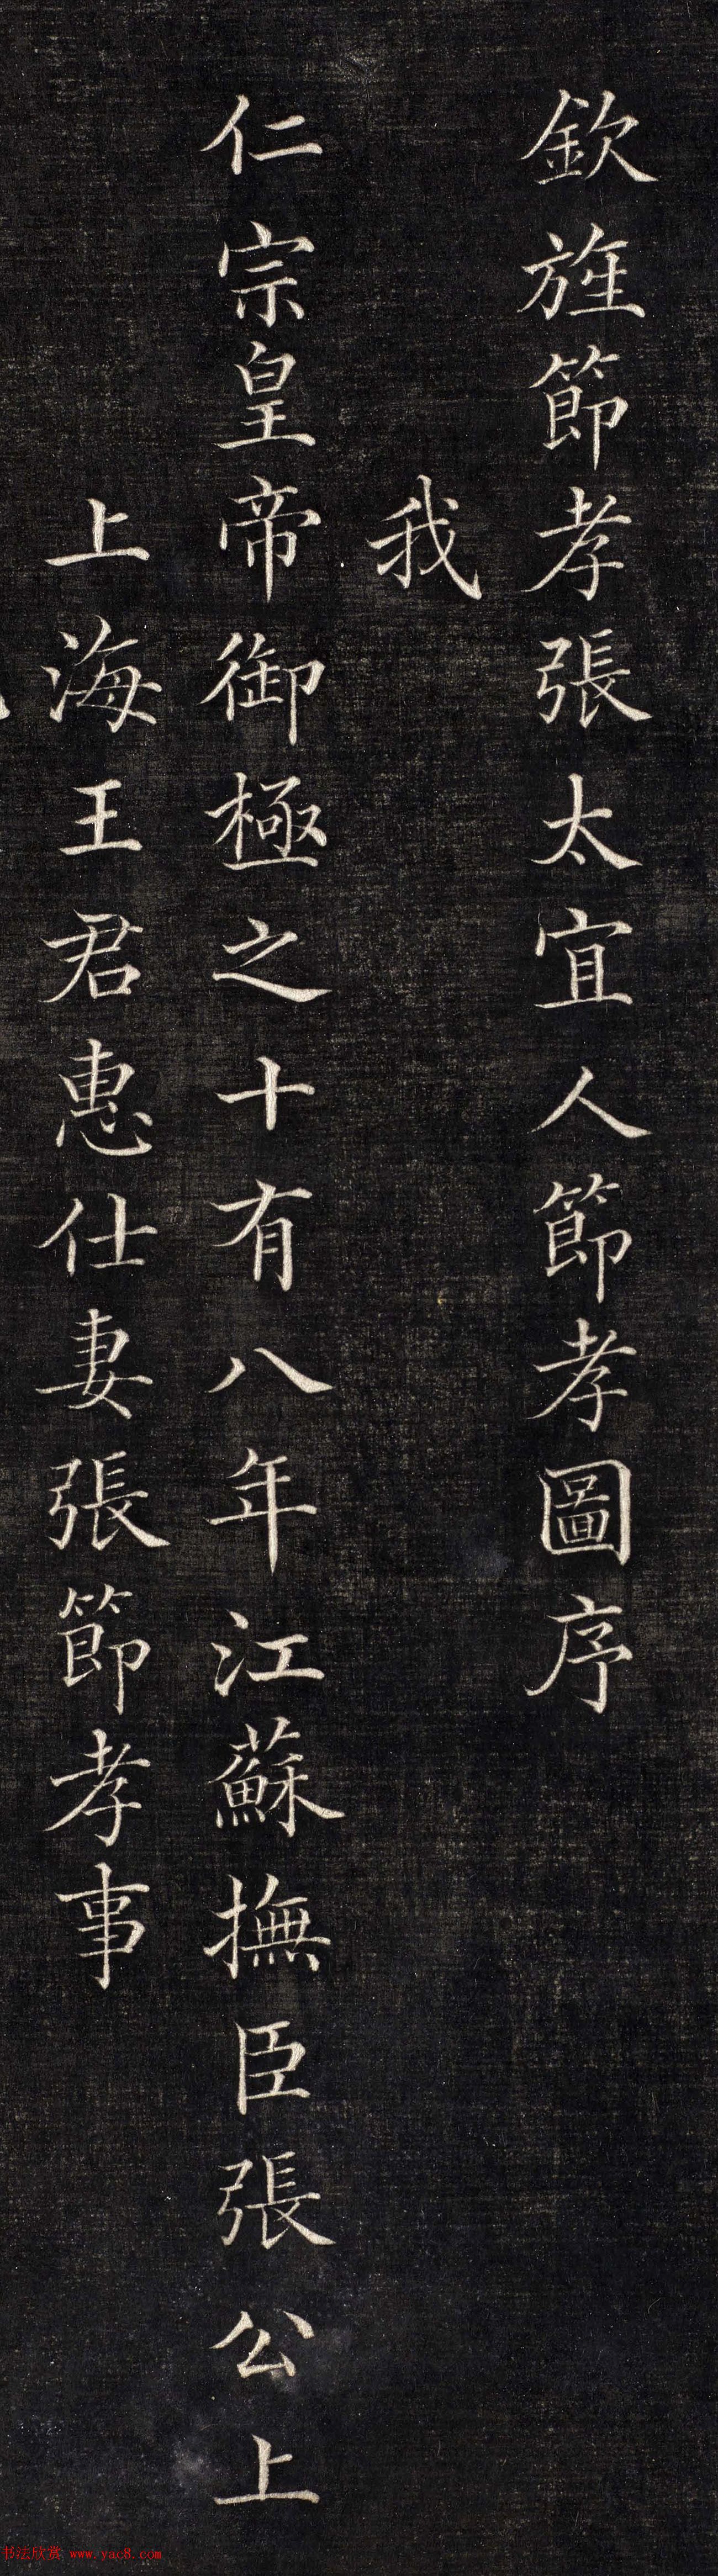 欽旌節孝張太宜人節孝圖序
我
仁宗皇帝御極之十有八年江蘇撫臣張公上
上海王君惠仕妻張節孝事
书法欣赏 www.yac8.com